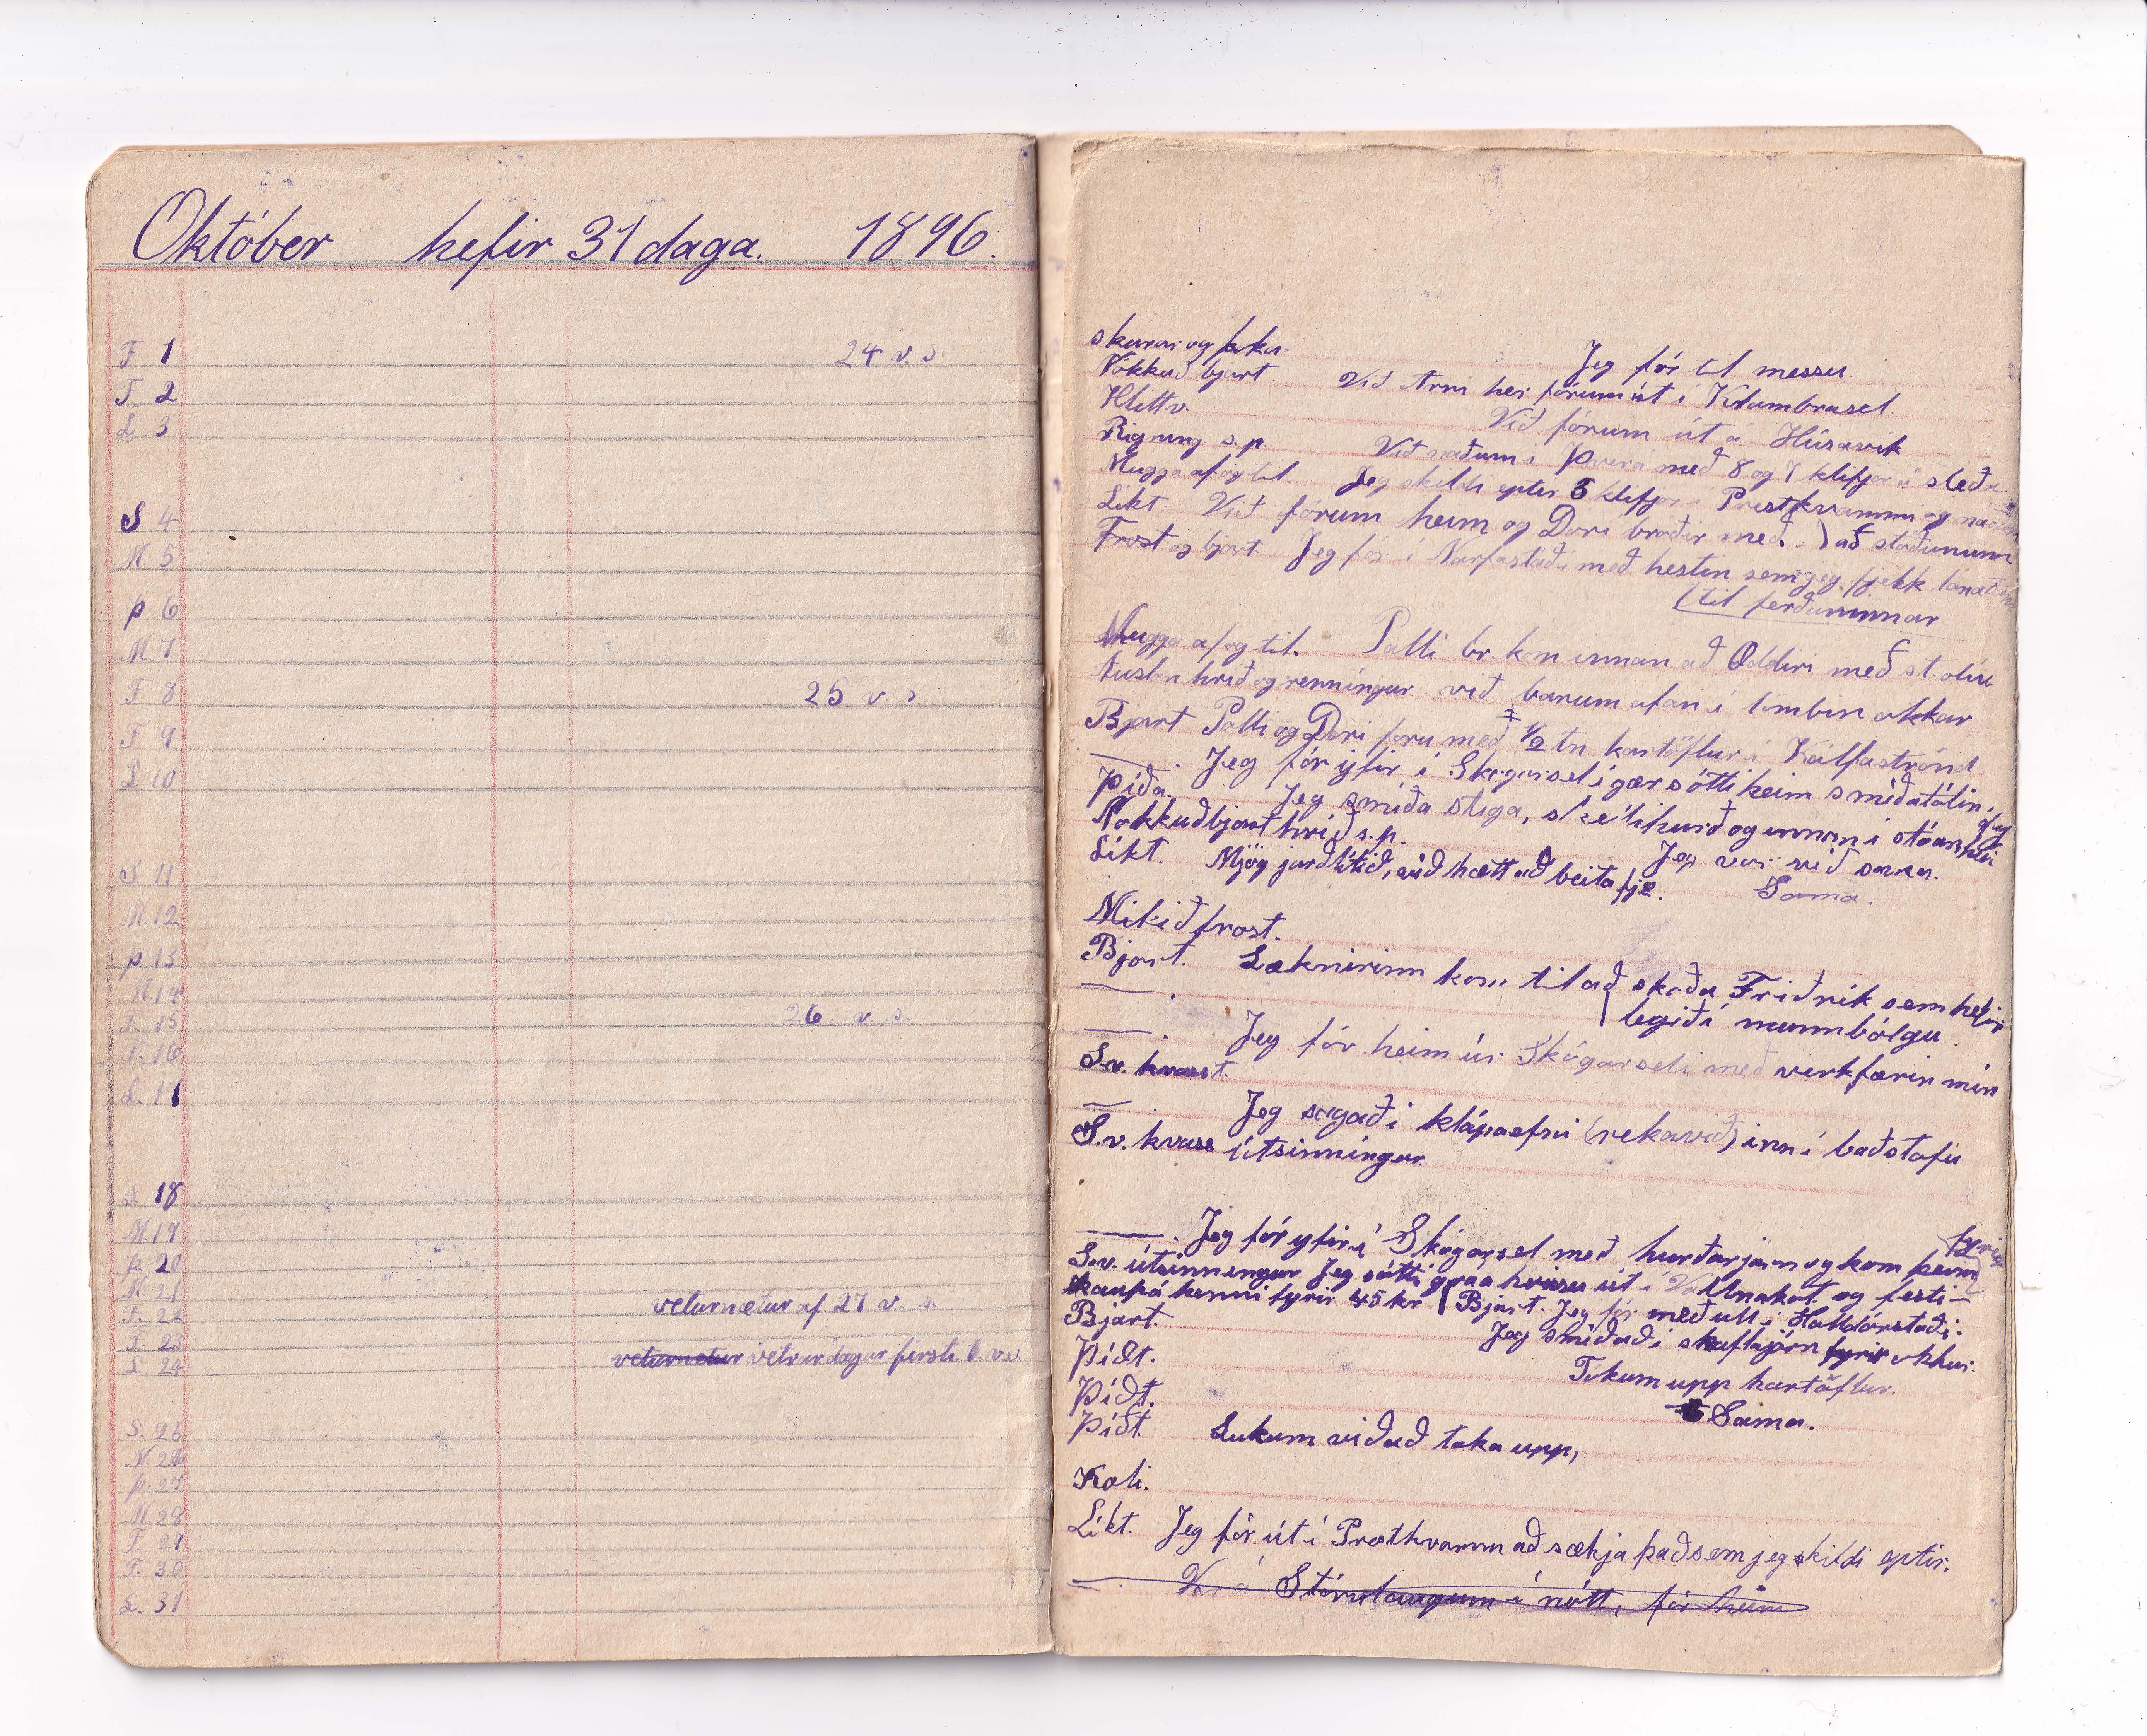 Október hefir 31 daga. 1896.
F 1 24 v. s.
F 2
L 3
S 4
M. 5
Þ 6
M. 7
F 8 25 v. s
F 9
L 10
S. 11
M. 12
Þ. 13
M. 14
F. 15 26 v. s.
F. 16
L. 11
S 18
M. 19
Þ. 20
M. 21
F. 22 veturnætur af 27 v. s.
F. 23
L 24 veturnætur vetrardagur firsti. 1. v. v
S. 25
M. 26
Þ. 27
M. 28
F. 29
F. 30
L. 31
skurar og þoka. Jeg fór til messu.
Nokkuð bjart Við Arni hér fórum út í Klambrasel.
Hlítt v. Við fórum út á Húsavík
Rigning s.p. Við náðum í Þverá með 8 og 7 klifjar á sleða
Mugga af og til. Jeg skildi eptir 3 klifjar í Presthvammi og
Líkt. Við fórum heim og Dóri bróðir með. ) að stöðunum
Frost og bjart. Jeg fór í Narfastaði með hestin sem jeg fjekk
(til ferðarinnar
Mugga af og til. Palli br. kom innan að Oddiri með st. olíu
Austan hríð og renningur við barum ofan í lömbin okkar
Bjart Palli og Dóri foru með 1/2 tn kartöflur í Kálfaströnd
— . Jeg fór yfir í Skógarsel í gær sótti heim smíðatólin
Þíða. Jeg smíða stiga, og innan í
Nokkuð bjart hríð s.p. Jeg var við sama.
Líkt. Mjög jarðlítið, við hætt að beita fje. Sama.
Mikið frost.
Bjart. Læknirinn kom til að skoða Friðrik sem hefir
— . legið í munnbólgu.
— . Jeg fór heim úr Skógarseli með verkfærin mín
S.v. hvast.
— Jeg sagaði klápaefni (rekavið) inn í baðstofu
S.v. hvass útsinníngur.
— . Jeg fór yfir í Skógarsel með hurðarjárn og kom heim
S.v. útsinningur Jeg sótti gráa hrússu út í Vallnakot og festi-
kaup á henni fyrir 45 kr ( Bjart. Jeg fór með ull í Halldórstaði.
Bjart. Jeg smíðaði skaftjárn fyrir okkur.
Þiðt. Tókum upp kartöflur.
Þiðt. Sama.
Þiðt. Lukum við að taka upp,
Kali.
Líkt. Jeg fór út í Presthvamm að sækja það sem jeg skildi eptir.
— . Var á Stórulaugum í nótt, fór heim